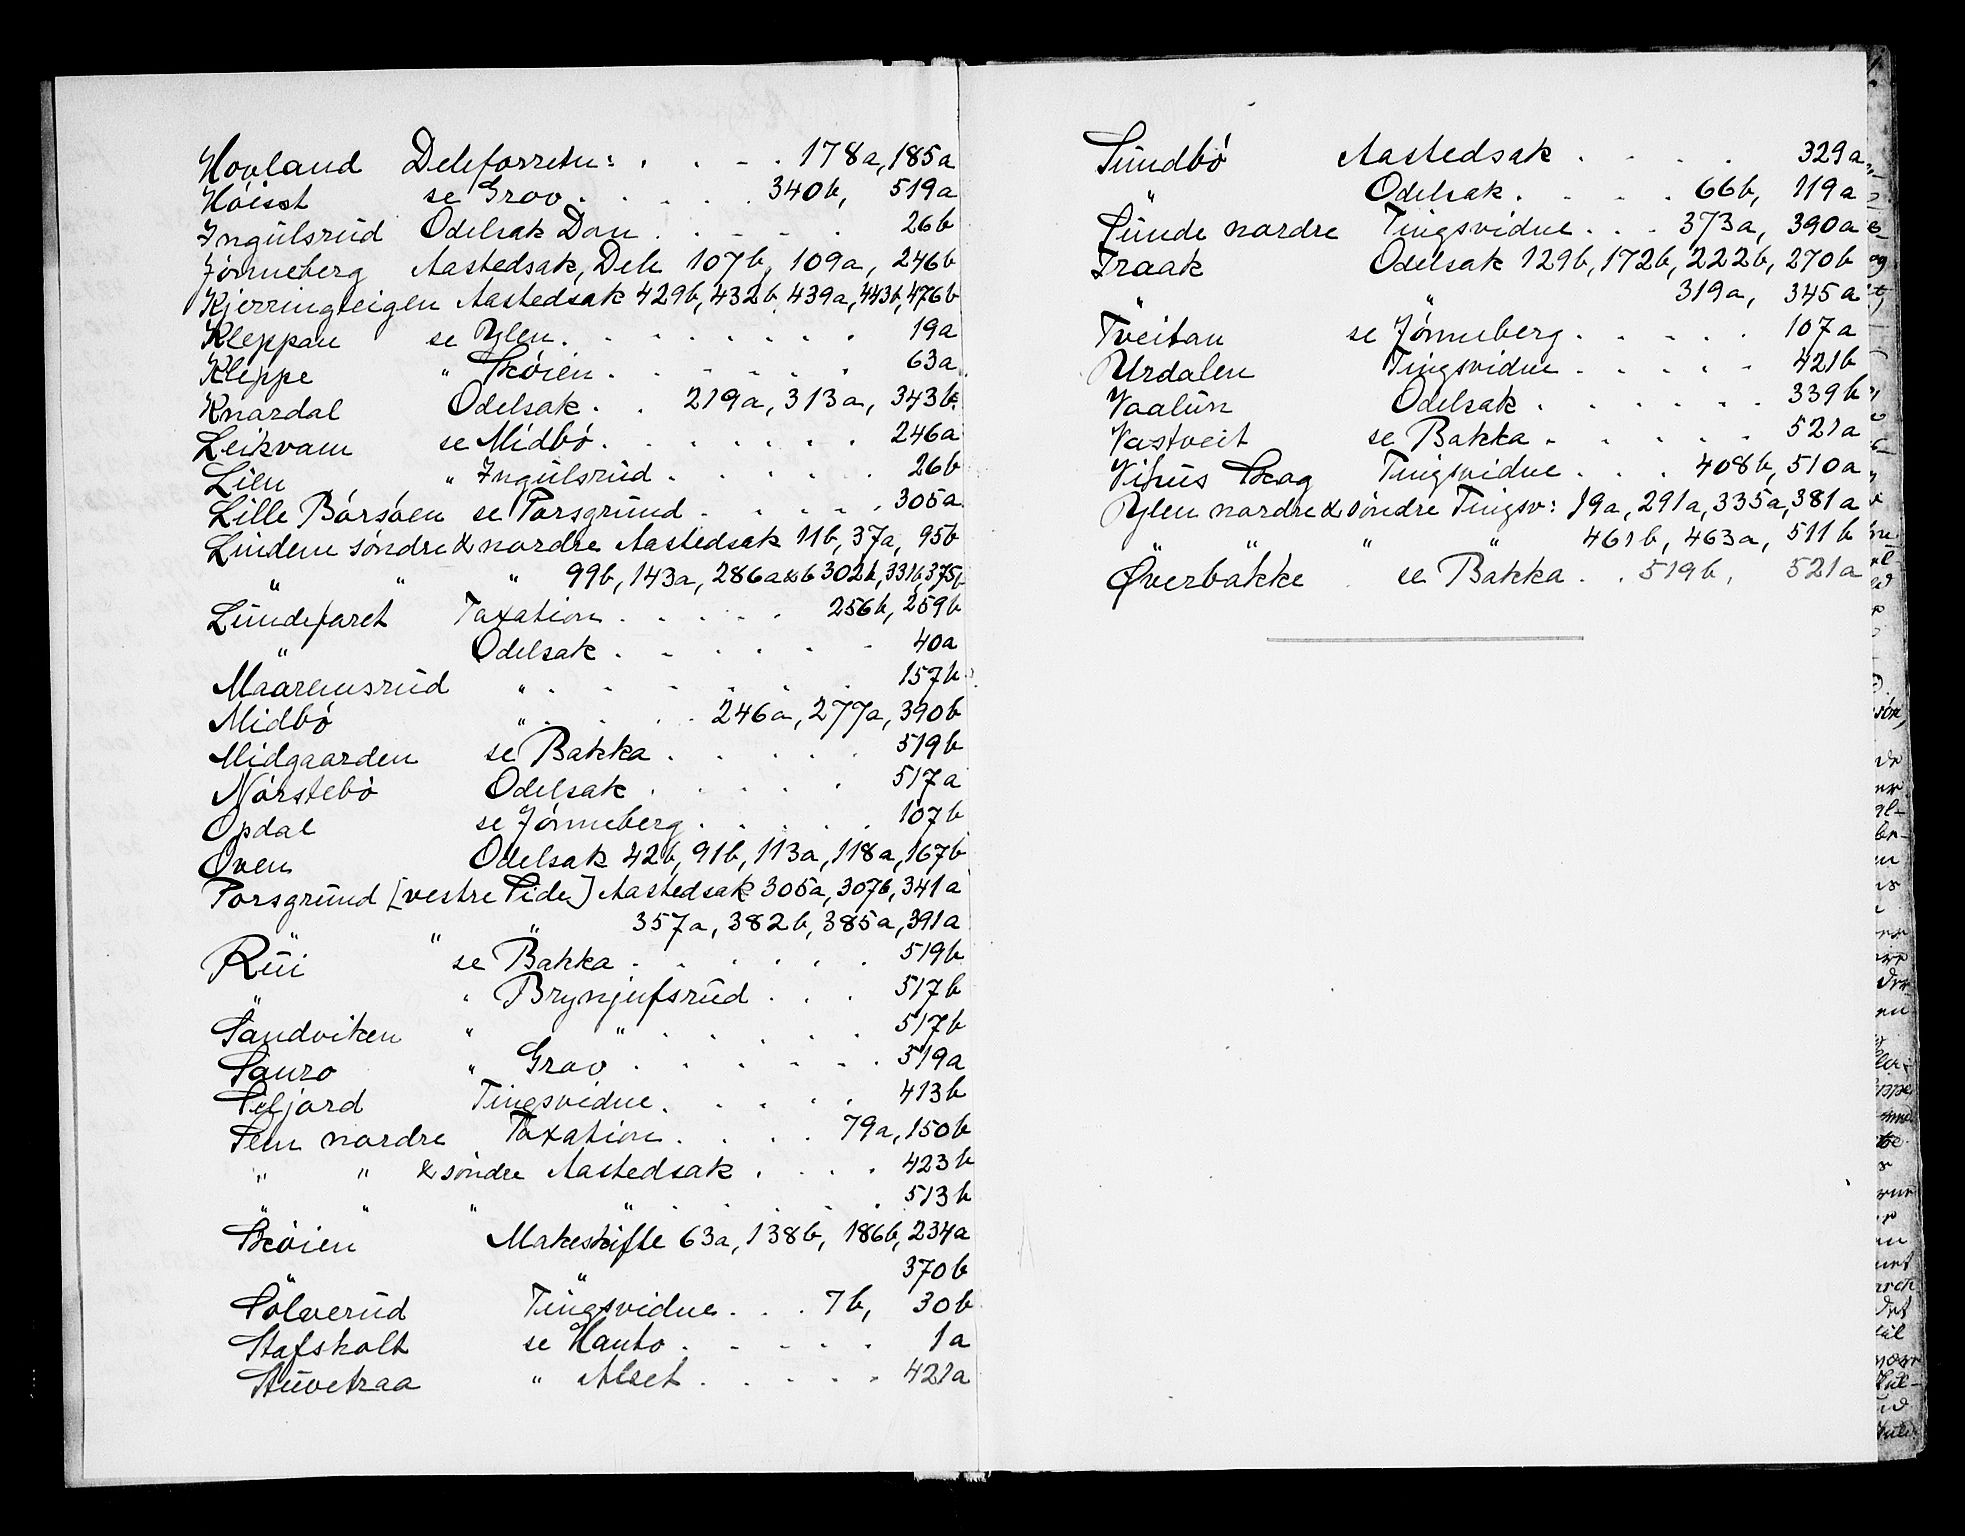 Hovland Deleforretn: . . . . 178a, 185a
Høisæt se Grov . . . . . 340b, 519a
Ingulsrud Odelsak Dom . . . . 26b
Jønneberg Aastedsak, Dele 107b, 109a, 246b
Kjerringteigen Aastedsak 429b, 432b, 439a, 443b, 476b
Kleppan se Ylen . . . . . . . . 19a
Kleppe " Skøien . . . . . . . 63a
Knardal Odelsak . . 219a, 313a, 343b
Leikvam se Midbø . . . . . . . 246a
Lien " Ingulsrud . . . . . . 26b
Lille Børsøen se Porsgrund . . . . . 305a
Lindem søndre & nordre Aastedsak 11b, 37a, 95b
" " " 99b, 143a, 286a&b 302b, 331b, 375b
Lundefaret Taxation . . . . . 256b, 259b
" Odelsak . . . . . . 40a
Maaremsrud " . . . . . . 157b
Midbø " . . . . 246a, 277a, 390b
Midgaarden se Bakka . . . . . 519b
Nørstebø Odelsak . . . . . 517a
Opdal se Jønneberg . . . . . 107b
Oven Odelsak 42b, 91b, 113a, 118a, 167b
Porsgrund [vestre Side] Aastedsak 305a, 307b, 341a
" " " 357a, 382b, 385a, 391a
Rui se Bakka . . . . . . 519b
" " Brynjufsrud . . . 517b
Sandviken " " . . . . . 517b
Sauro " Grov . . . . . . 519a
Sefjord Tingsvidne . . . . . 413b
Sem nordre Taxation . . . . 79a, 150b
" " & søndre Aastedsak . . . . 423b
" " " " . . . . . 513b
Skøien Makeskifte 63a, 138b, 186b, 234a
" " 370b
Sølverud Tingsvidne . . . 7b, 30b
Stafsholt se Hanto . . . . . 1a
Stuvetraa " Alset . . . . . 421a
Sundbø Aastedsak . . . . 329a
" Odelsak . . . . 66b, 119a
Sunde nordre Tingsvidne . . . 373a, 390a
Traak Odelsak 129b, 172b, 222b, 270b
" 319a, 345a
Tveitan se Jønneberg . . . . . 107a
Urdalen Tingsvidne . . . . . 421b
Vaalun Odelsak . . . . . . 339b
Vastveit se Bakka . . . . . 521a
Vipus Skog Tingsvidne . . . 408b, 510a
Ylen nordre & søndre Tingsv: 19a, 291a, 335a, 381a
" " " " 461b, 463a, 511b
Øverbakke se Bakka . . 519b, 521a